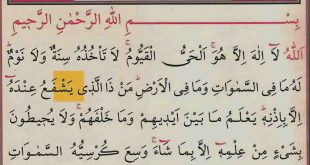 بِسْمِ اللهِ الرَّحْمٰنِ الرَّحِيمِ
اَللهُ لَا اِلٰهَ اِلَّا هُوَ اَلْحَىُّ الْقَيُّومُ لَا تَأْخُذُهُ سِنَةٌ وَلَا نَوْمٌ
لَهُ مَا فِى السَّمٰوَاتِ وَمَا فِى الْاَرْضِ مَنْ ذَا الَّذِى يَشْفَعُ عِنْدَهُ
اِلَّا بِاِذْنِهِ يَعْلَمُ مَا بَيْنَ اَيْدِيهِمْ وَمَا خَلْفَهُمْ وَلَا يُحِيطُونَ
بِشَىْءٍ مِنْ عِلْمِهِ اِلَّا بِمَا شَاءَ وَسِعَ كُرْسِيُّهُ السَّمٰوَاتِ